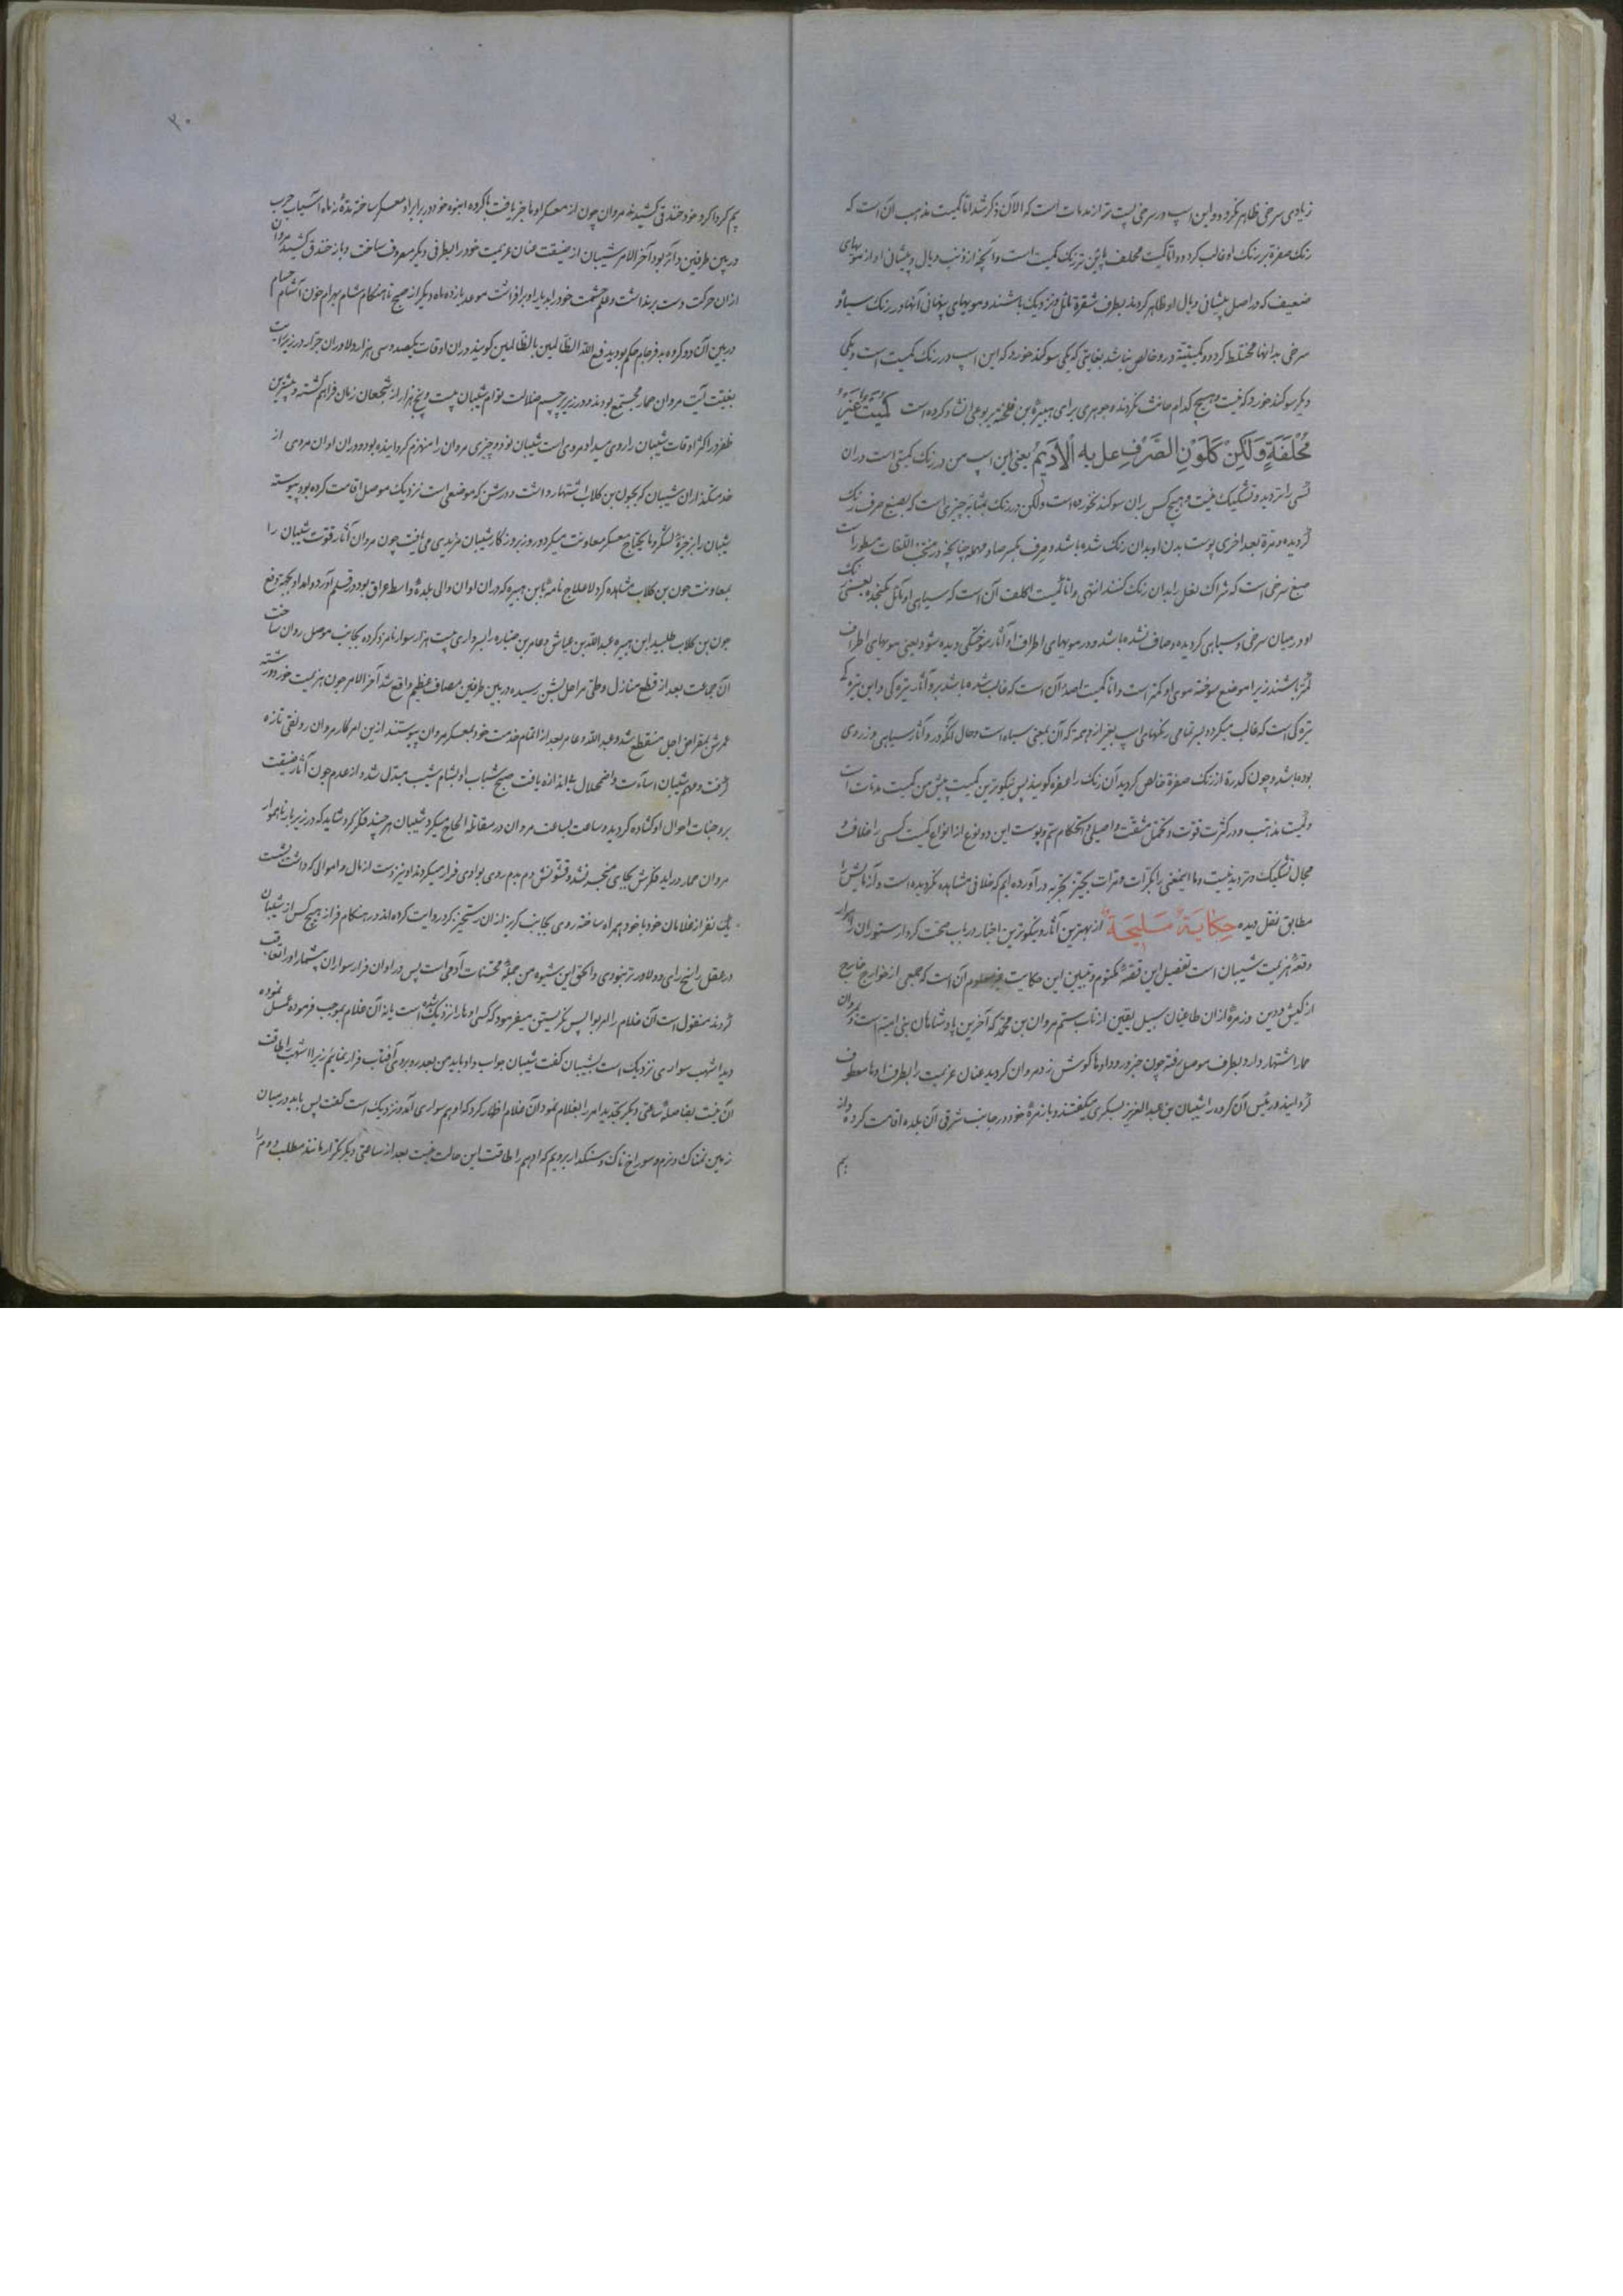 زیادی سرخی ظاهر نگردد و این اسپ در سرخی پست تر از مدمات است که الآن ذکر شد اما کمیت مذهب آن است که
رنک صفرة بر رنک او غالب کردد و اما کمیت محلف پائین تر رنک کمیت است و آنچه از ذنب و یال و پیشانی او از مویهای
ضعیف که در اصل پیشانی و یال او ظاهر کردند بطرف شقرة مائل و نزدیک باشند و مویهای پنهانی آنها در رنک سیاه و
سرخی بدانها مختلط کردد و کمیتیة در و خالص نباشد بغایتی که یکی سوکند خورد که این اسپ در رنک کمیت است و یکی
دیکر سوکند خورد که نیست و هیچ کدام حانث نکردند و جوهری برای هبیرة بن کلحبه یربوعی انشاد کرده است كُمَيْتٌ غَيْرُ
مُحْلَفَةٍ وَلَكِنْ كَلَوْنِ الصِّرْفِ عل به الْأَدِيمُ یعنی این اسپ من در رنک کمیتی است در ان
کسی را تردید و تشکیک نیست و هیچ کس بران سوکند نخورده است ولکن در رنک بمثابه چیزی است که بصبغ صرف رنک
کردیده و مرة بعد اخری پوست بدن او بدان رنک شده باشد و صرف بکسر صاد مهمله چنانچه در منتخب اللغات مسطور است
صبغ سرخی است که شراک نعل را بدان رنک کنند انتهی و اما کمیت اکلف آن است که سیاهی او مائل بکنجد و یعنی رنک
او در میان سرخی و سیاهی کردیده و صاف نشده باشد و در مویهای اطراف او آثار سوختکی دیده شود یعنی مویهای اطراف
کمتر باشند زیرا موضع سوخته موی او کمتر است و اما کمیت اصدأ آن است که غالب شده باشد بر و آثار تیره کی و این تیره کی
تیره کی است که غالب میکردد بر تمامی رنکهای اسپ بغیر از دهمه که آن بمعنی سیاه است و حال آنکه در و آثار سیاهی و زردی
بوده باشد و چون کدرة از رنک صفرة خالص کردید آن رنک را عفره کویند پس نیکوترین کمیت پیش من کمیت مدمات است
و کمیت مذهب و در کثرت قوت و تحمل مشقت و اصیلی و استحکام سم و پوست این دو نوع از انواع کمیت کسی را خلاف و
مجال تشکیک و تردید نیست و ما اینمعنی را بکرات و مرات بحیز تجربه در آورده ایم که خلافی مشاهده نکردیده است و آزمایش را
مطابق نقل دیده حِكَايَةٌ مَلِيحَةٌ از بهترین آثار و نیکوترین اخبار در باب صحت کردار ستوران
وقعۀ هزیمت شیبان است تفصیل این قصۀ مکتوم و تبیین این حکایت غیر معلوم آن است که جمعی از خوارج خارج
از کیش و دین و زمرۀ از ان طاغیان سبیل یقین از تاب ستم مروان بن محمد که آخرین پادشاهان بنی امیه است و بمروان
حمار اشتهار دارد بطرف موصل رفته چون خبر ورود اونها کوش زد مروان کردید عنان عزیمت را بطرف اونها معطوف
کردانید و رئیس آن کروه را شیبان بن عبد العزیز یشکری میکفتند و با زمرۀ خود در جانب شرقی آن بلده اقامت کرده و از
بیم
۳۰
بیم کرداکرد خود خندقی کشیده مروان چون از معسکر اونها خبر یافت با کروه انبوه خود در برابر او معسکر ساخته مدة نه ماه آسیاب حرب
در بین طرفین دائر بود آخر الامر شیبان از ضیقت عنان عزیمت خود را بطرفی دیکر مصروف ساخت و باز خندق کشید مروان
از ان حرکت دست برنداشت و علم حشمت خود را بدیار او برافراشت موعد یازده ماه دیکر از صبح تا هنکام شام بهرام خون آشام حسام
در بین آن دو کروه بدفرجام حکم بودید فع الله الظالمین بالظالمین کویند در ان اوقات یکصد و سی هزار دلاوران جرار در زیر رایت
بغیت آیت مروان حمار مجتمع بودند و در زیر پرچم ضلالت توام شیبان بیست و پنج هزار از شجعان زمان فراهم کشته و پیشترین
ظفر در اکثر اوقات شیبان را روی میداد مروی است شیبان نود و چیزی مروان را منهزم کردانیده بود و در ان اوان مردمی از
خدمتکذاران شیبان که بجون بن کلاب اشتهار داشت و در شن که موضعی است نزدیک موصل اقامت کرده بود پیوسته
شیبان را بذخیرۀ لشکر و ما یحتاج معسکر معاونت میکرد و روز بروز کار شیبان مزیدی می یافت چون مروان آثار قوت شیبان را
بمعاونت جون بن کلاب مشاهده کرد لاعلاج نامه بابن هبیره که در ان اوان والی بلدة واسط عراق بود در قلم آورد و امداد او بجهة دفع
جون بن کلاب طلبید ابن هبیره عبد الله بن عیاش و عامر بن ضباره را بسرداری بیست هزار سوار نامزد کرده بجانب موصل روان ساخت
آن جماعت بعد از قطع منازل و طی مراحل بشن رسیده در بین طرفین مصاف عظیم واقع شد آخر الامر جون هزیمت خورد و رشته
عمرش بمقراض اجل منقطع شد و عبد الله و عامر بعد از اتمام خدمت خود بمعسکر مروان پیوستند ازین امر کار مروان رونقی تازه
کرفت و مهم شیبان اسائت و اضمحلال بی اندازه یافت صبح شباب او بشام شیب مبدل شد و از عدم جون آثار ضیقت
بر وجنات احوال او کشاده کردید و ساعت بساعت مروان در مقاتله الحاح میکرد شیبان هر چند فکر کرد شاید که در زیر بار ناهموار
مروان حمار در اید فکرش بجای منجر نشد و قشونش دم بدم روی بوادی فرار میکردند او نیز دست از مال و اموالی که داشت بشست
یک نفر از غلامان خود با خود همراه ساخته روی بجانب کریز از ان رستخیز کرد روایت کرده اند در هنکام فرار هیچ کس از شیبان
در عقل راسخ رای و دلاور تر نبودی و الحق این شیوه من جمله محسنات آدمی است پس در اوان فرار سواران بیشمار او را تعاقب
کردند منقول است آن غلام را امر بواپس نکریستن میفرمود که کسی اونها را نزدیک شده است یا نه آن غلام بموجب فرموده عمل نموده
دید اشهب سواری نزدیک است بشیبان کفت شیبان جواب داد باید من بعد روبروی آفتاب فرار نمایم زیرا اشهب را طاقت
آن نیست بفاصلۀ ساعتی دیکر بتجدید امر را بغلام نمود آن غلام اظهار کرد که ادهم سواری آمد و نزدیک است کفت پس باید در میان
زمین نمناک و نرم و سوراخ ناک و سنکدار برویم که ادهم را طاقت این حالت نیست بعد از ساعتی دیکر تکرار مانند مطلب دوم را